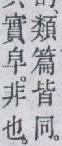 類篇皆同。
實皁。非也。